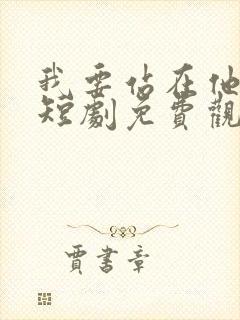 我要佔在他
短劇免費觀
賈書章